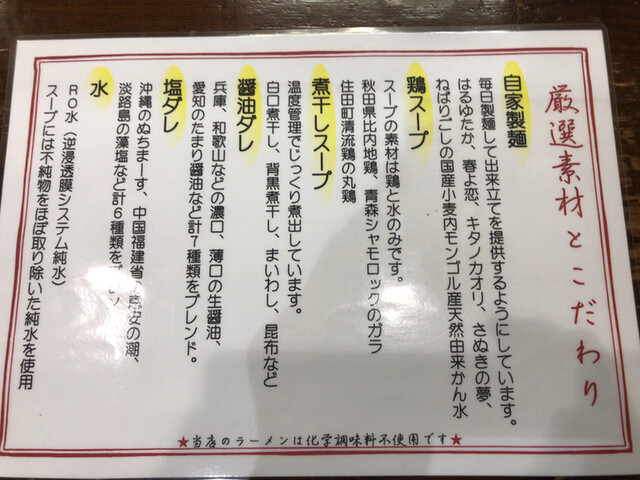 厳選素材とこだわり
自家製麺
毎日製麺して出来立てを提供するようにしています。
はるゆたか、春よ恋、キタノカオリ、さぬきの夢、
ねばりごしの国産小麦内モンゴル産天然由来かん水
鶏スープ
スープの素材は鶏と水のみです。
秋田県比内地鶏、青森シャモロックのガラ
住田町清流鶏の丸鶏
煮干しスープ
温度管理でじっくり煮出しています。
白口煮干し、背黒煮干し、まいわし、昆布など
醤油ダレ
兵庫、和歌山などの濃口、薄口の生醤油、
愛知のたまり醤油など計7種類をブレンド。
塩ダレ
沖縄のぬちまーす、中国福建省 恵安の潮、
淡路島の藻塩など計6種類をブレン
水
RO水（逆浸透膜システム純水）
スープには不純物をほぼ取り除いた純水を使用
★当店のラーメンは化学調味料不使用です★